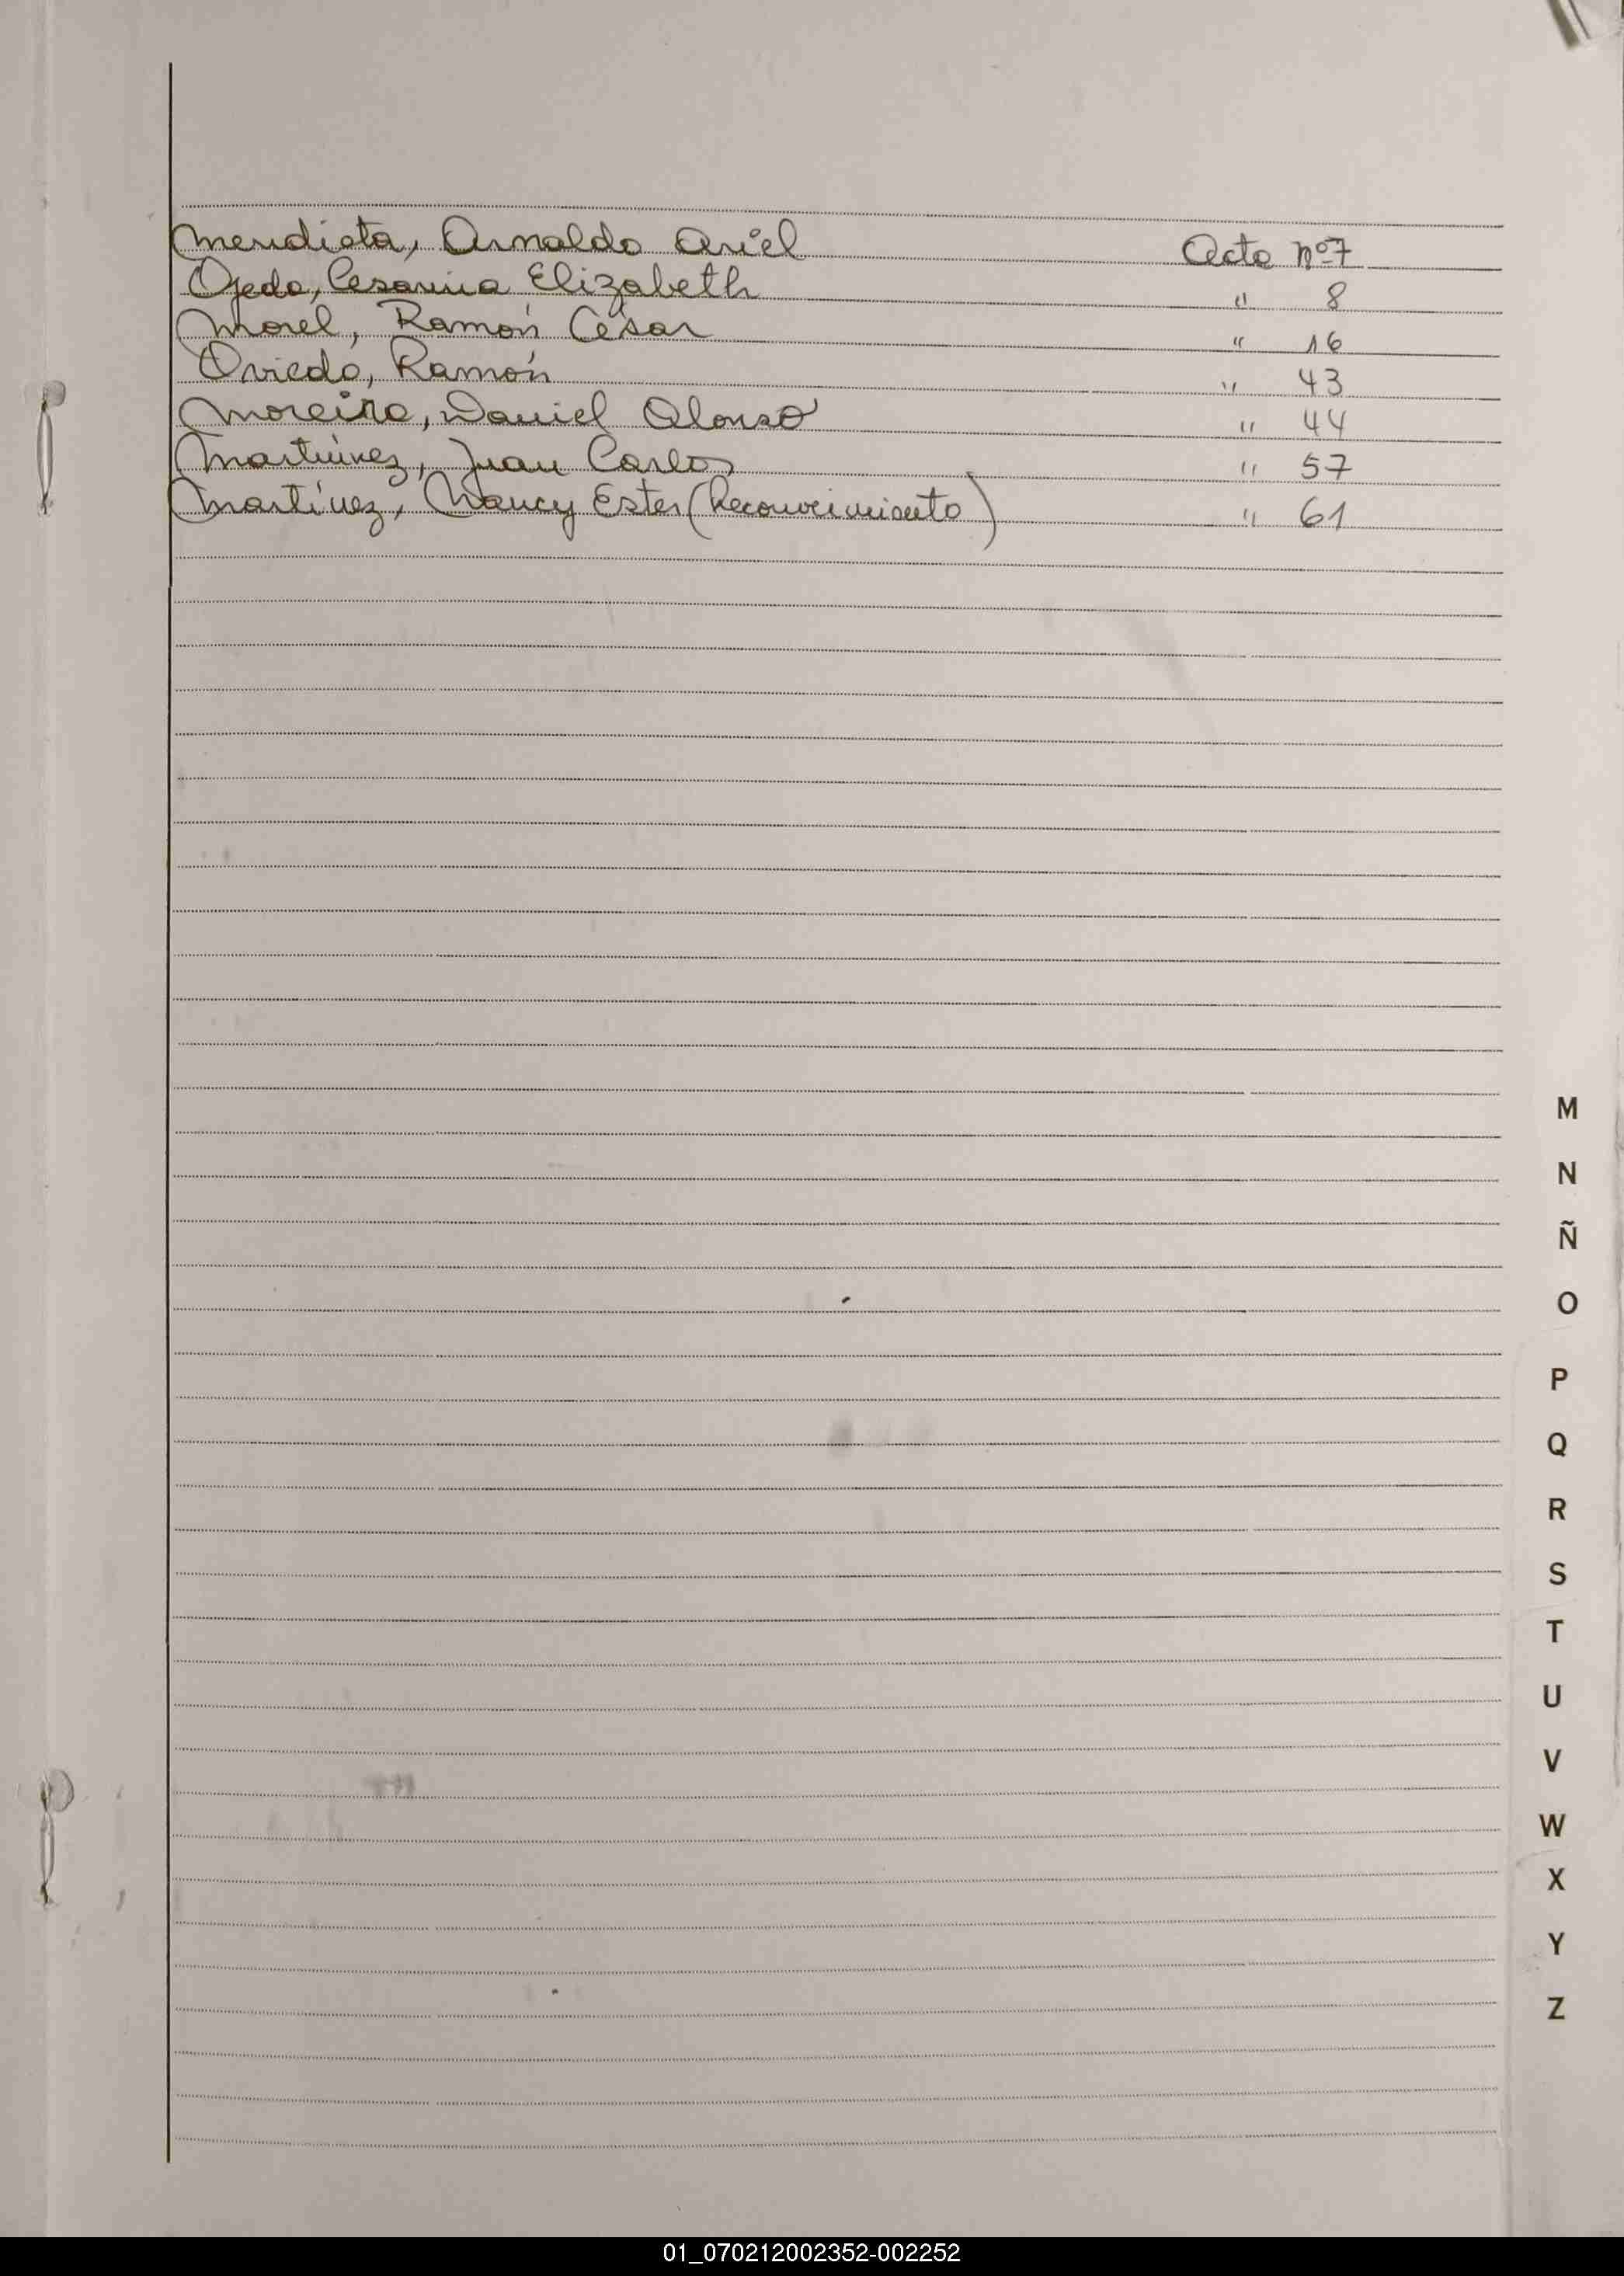 Mendieta, Arnaldo Ariel Acta nº 7
Ojeda, Cesarina Elizabeth " 8
Morel, Ramón César " 16
Oviedo, Ramón " 43
Moreira, Daniel Alonso " 44
Martínez, Juan Carlos " 57
Martínez, Nancy Ester (Reconocimiento) " 61
M
N
Ñ
O
P
Q
R
S
T
U
V
W
X
Y
Z
01_070212002352-002252